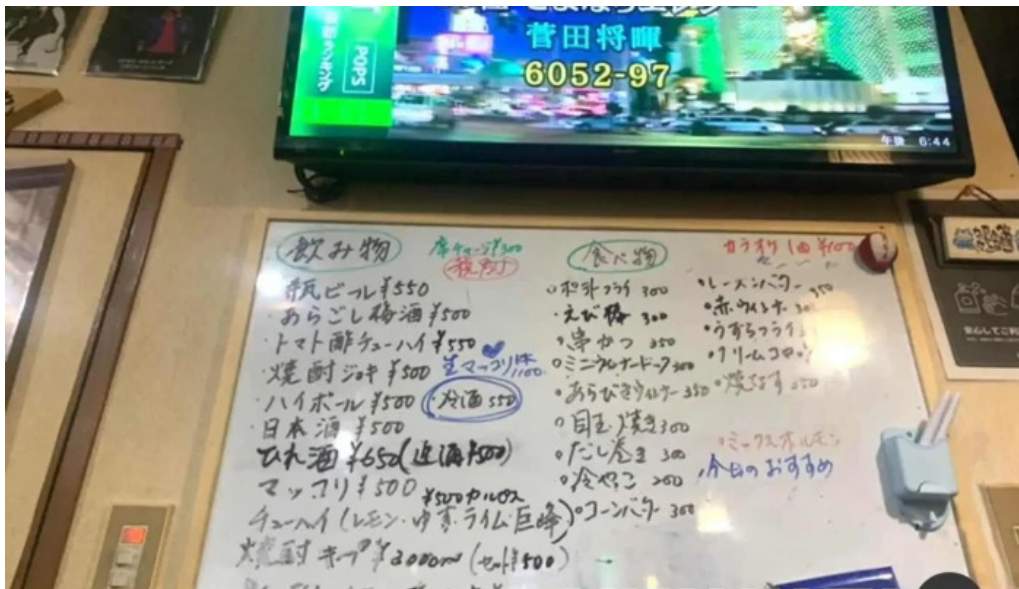 菅田将暉
6052-97
POPS
ランキング
午後 6:44
飲み物
席チャージ¥300
税別
瓶ビール¥550
あらごし梅酒¥500
トマト酢チューハイ¥550
焼酎ジョキ¥500
生マッコリ
ハイボール¥500
冷酒550
日本酒¥500
ひれ酒¥650(追酒¥500)
マッコリ¥500
¥500カルピス
チューハイ(レモン・ゆず・ライム・巨峰)
焼酎キープ¥3000(セット¥500)
食べ物
カラオケ1曲¥100
ポテトフライ300
えび
300
串かつ350
ミニウィンナードック300
あらびきウィンナー350
目玉焼き300
だし巻き300
冷やっこ200
コーンバター300
レーズンバター350
赤ウィンナー
うずらフライ
クリームコロッ
焼なす350
ミックスホルモン
今日のおすすめ